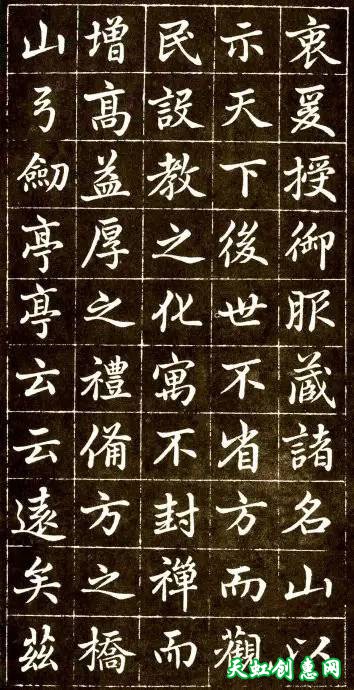 衷爰授御服藏諸名山以
示天下後世不省方而觀
民設教之化寓不封禪而
增髙益厚之禮備方之橋
山弓劒亭亭云云遠矣茲
天虹创意网